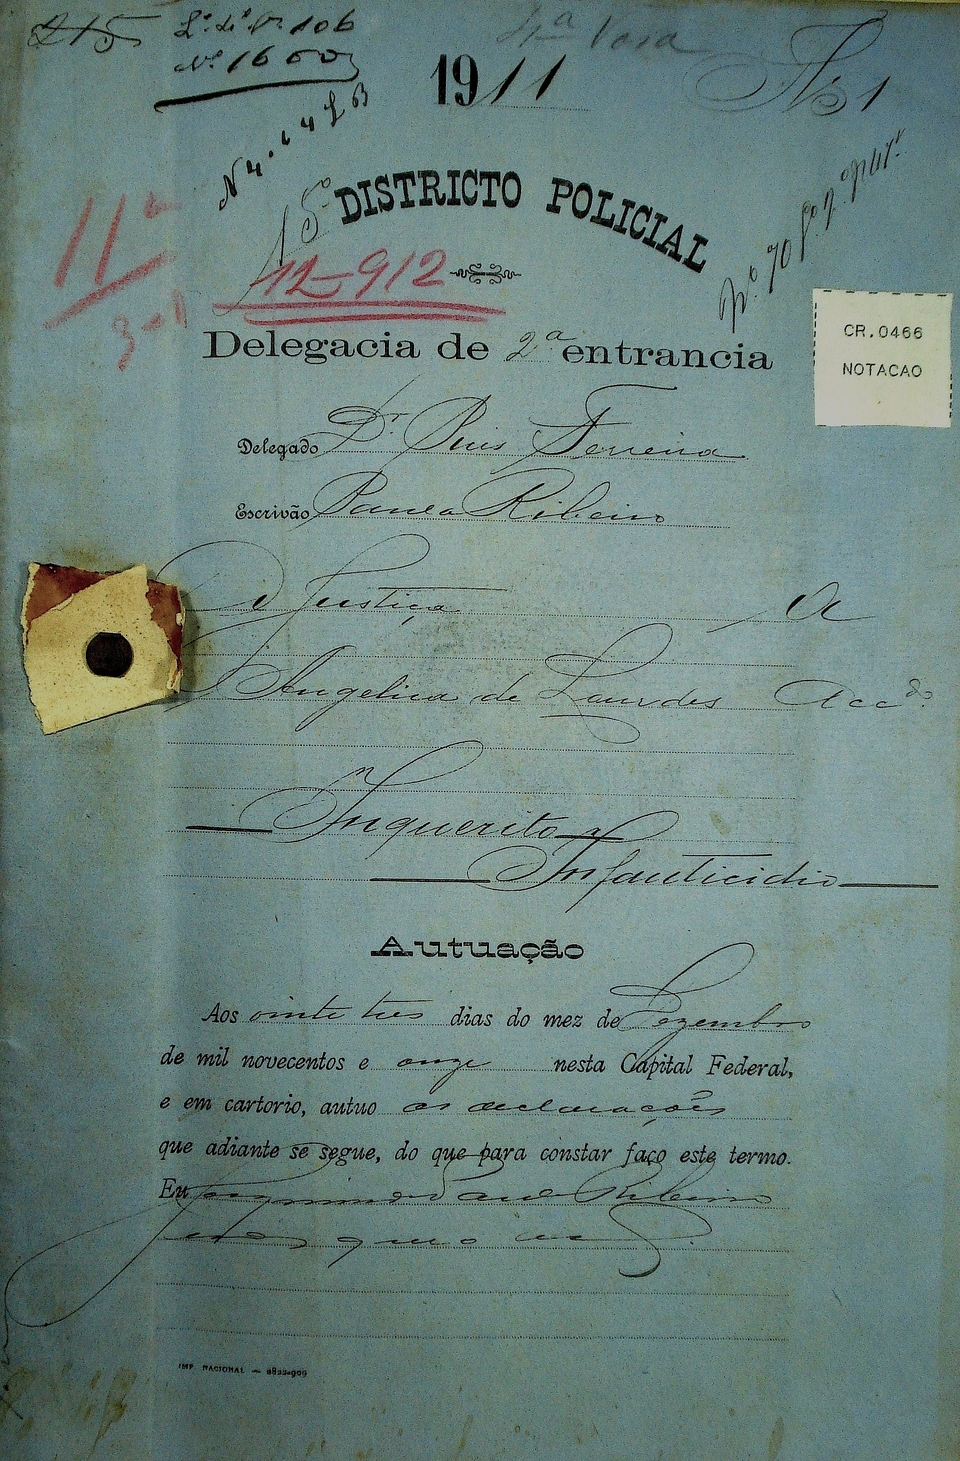 215
Nº 1600
4ª Vara
1911
Fls 1
15º DISTRICTO POLICIAL
11ª
12-912
CR.0466
NOTACAO
Delegacia de 2ª entrancia
Delegado Dr. Ferreira
Escrivão Paula Ribeiro
A Justiça A
Angelica de Lourdes Accda
Inquerito
Infanticidio
Autuação
Aos vinte tres dias do mez de Dezembro
de mil novecentos e onze nesta Capital Federal,
e em cartorio, autuo as declarações
que adiante se segue, do que para constar faço este termo.
Eu Paula Ribeiro
IMP. NACIONAL —